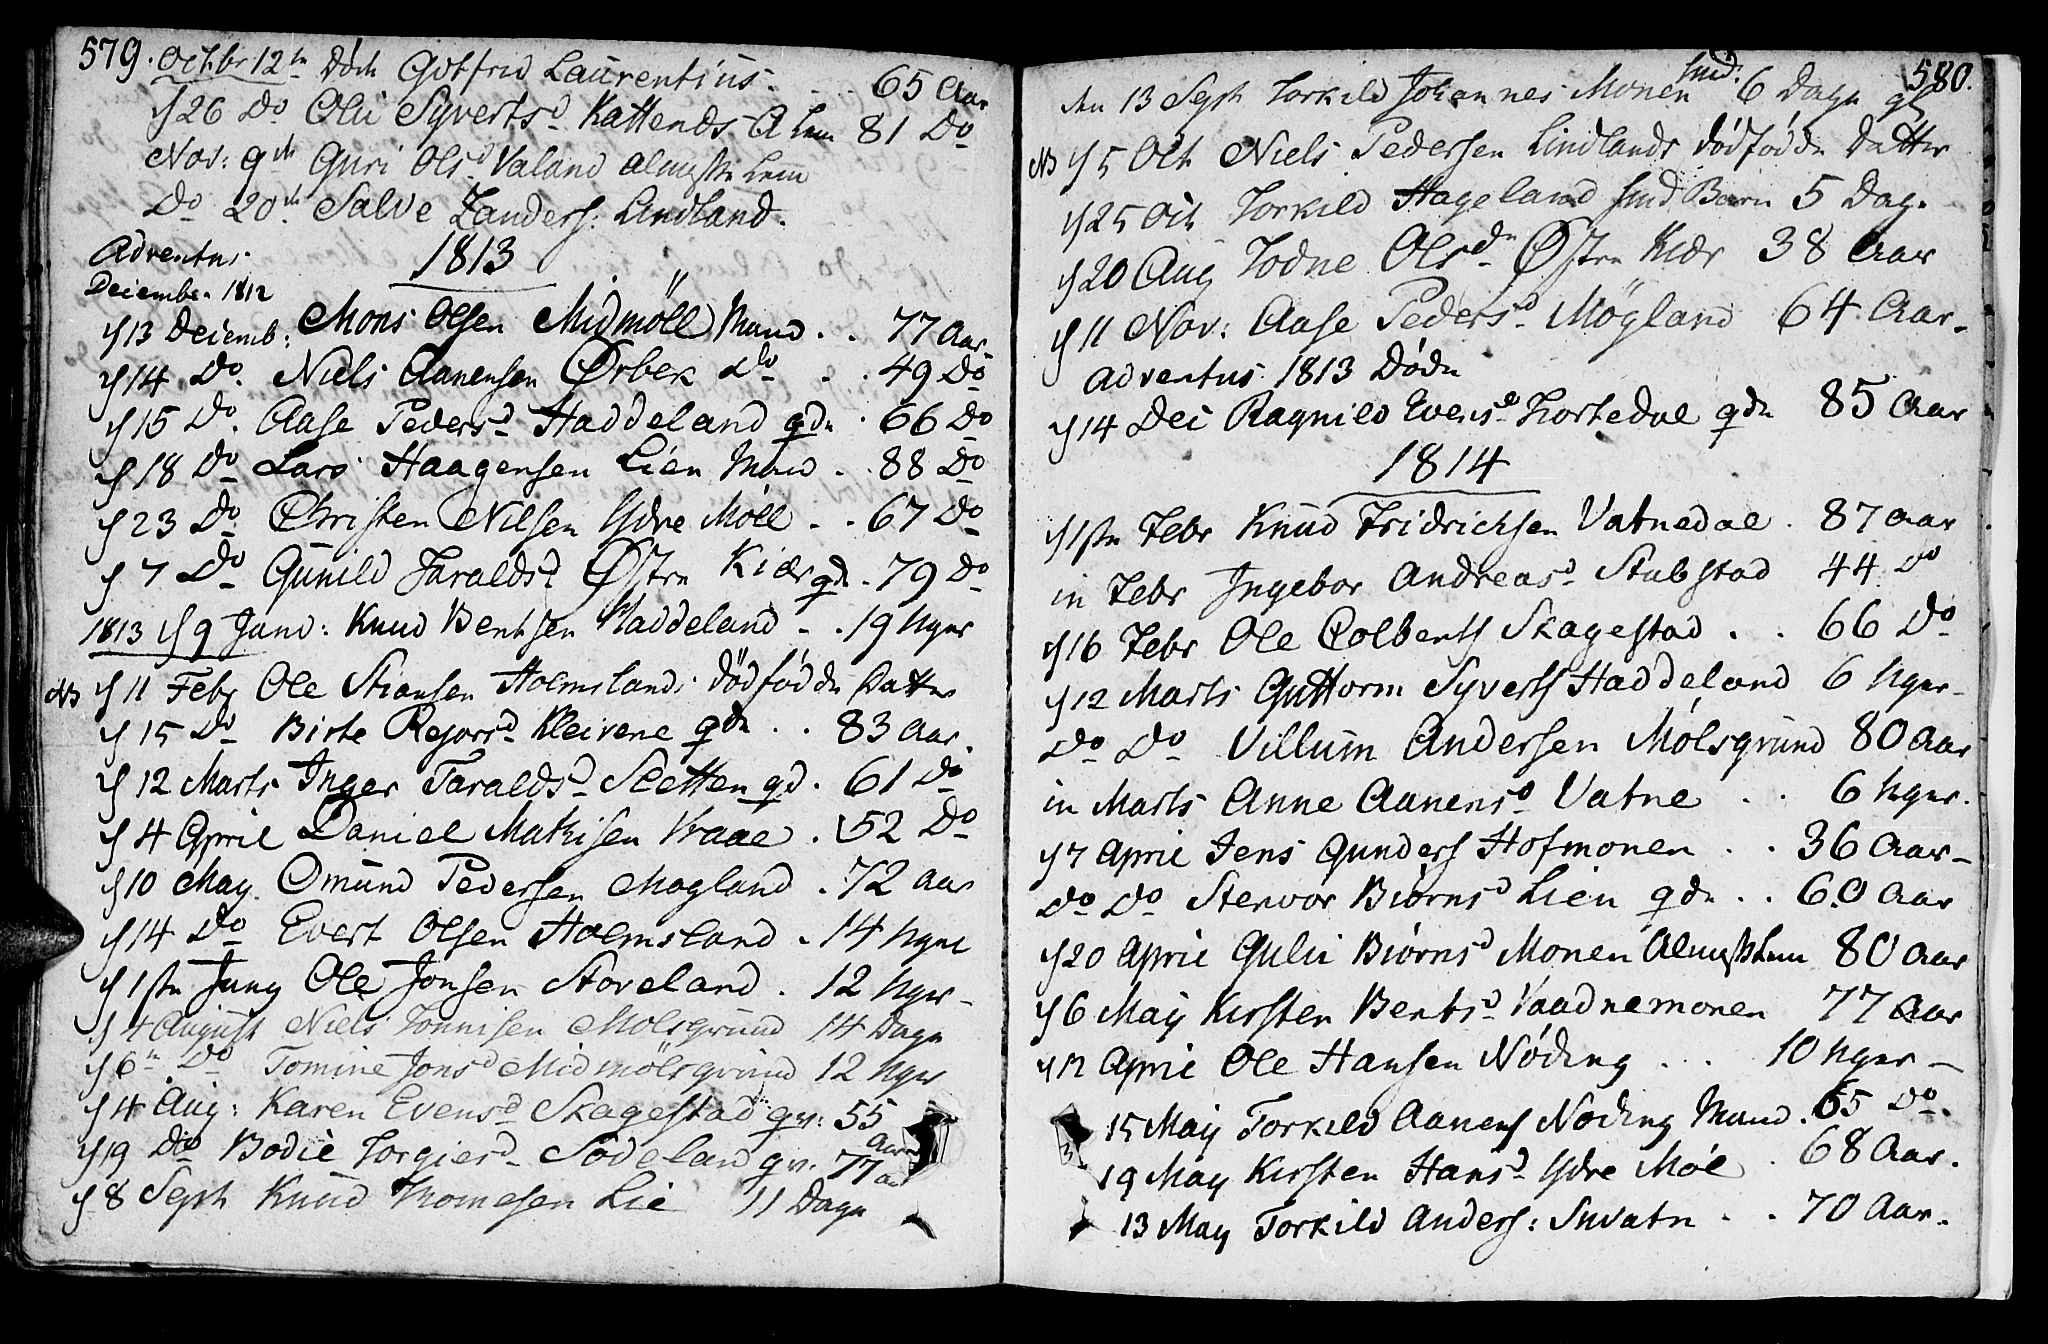 579. Octbr 12te Døde Gotfrid Laurentius. . . 65 Aar
d 26 Do Oli Syvertsd Kattends A Lem 81 Do
Nov: 9de Guri Olsd Valand Almisse Lem
Do 20de Salve Zanders: Lindland.
Adventus
1813
December 1812
d 13 Decemb: Mons Olsen Midmöll Mand . . 77 Aar
d 14 Do. Niels Aanensen Ørbek Do . . 49 Do
d 15 Do. Aase Pedersd Haddeland gdn . 66 Do
d 18 Do Lars Haagensen Lien Mand . 88 Do
d 23 Do Christen Nilsen Ydre Möll . . 67 Do
d 7 Do Gunild Taraldsd Østre Kiær gdn . 79 Do
1813 d 9 Janv: Knud Bentsen Haddeland . . 19 Uger
NB d 11 Febr Ole Stiansen Holmslands dödfödde Datter
d 15 Do Birte Rejorsd Kleivene gdn . . 83 Aar.
d 12 Marts Inger Taraldsd Sletten gd. 61 Do
d 4 April Daniel Mathisen Kraae . 52 Do
d 10 May Omund Pedersen Mogland . 72 Aar
d 14 Do Evert Olsen Holmsland . 14 Uger
d 1ste Juny Ole Jonsen Stoveland . 12 Uger
d 4 August Niels Tonnisen Mölsgrund 14 Dage
d 6te Do Tomine Jonsd Midmölsgrund 12 Uger
d 4 Aug: Karen Evensd Skagestad gv: 55 Aar
d 19 Do Bodil Torgiersd Södeland gv. 77 a
d 8 Septr Knud Thomesen Lie 11 Dage
580.
den 13 Septr Torkild Johannes Monen Smd. 6 Dage gl
NB d 5 Oct Niels Pedersen Lindlands dödfödde Datter
d 25 Oct Torkild Hageland Smd Barn 5 Dag.
d 20 Aug Todne Olsdn Østre Kiær 38 Aar
d 11 Nov: Aase Pedersd Mögland 64 Aar
Adventus 1813 Døde
d 14 Dec Ragnild Evensd Tortedal gdn 85 Aar
1814
d 1ste Febr Knud Fridrichsen Vatnedal . 87 Aar
in Febr Ingebor Andreasd Stubstad 44 Do
d 16 Febr Ole Colbents Skagestad . . 66 Do
d 12 Marts Guttorm Syverts Haddeland 6 Uger
Do Do Villum Andersen Mölsgrund 80 Aar
in Marts Anne Aanensd Vatne . . 6 Uger.
d 7 April Jens Gunders Hofmonen . . 36 Aar
Do Do Stervor Biörnsd Lien gdn . . 60 Aar
d 20 April Guli Biörnsd Monen Almisse Lem 80 Aar
d 6 May Kirsten Bentsd Vaadnemonen 77 Aar
d 12 April Ole Hansen Nöding . . . 10 Uger
15 May Torkild Aanens Nöding Mand . 65 Do.
19 May Kirsten Hansd Ydre Möl . 68 Aar.
13 May Torkild Anders: Suvatn . . 70 Aar.